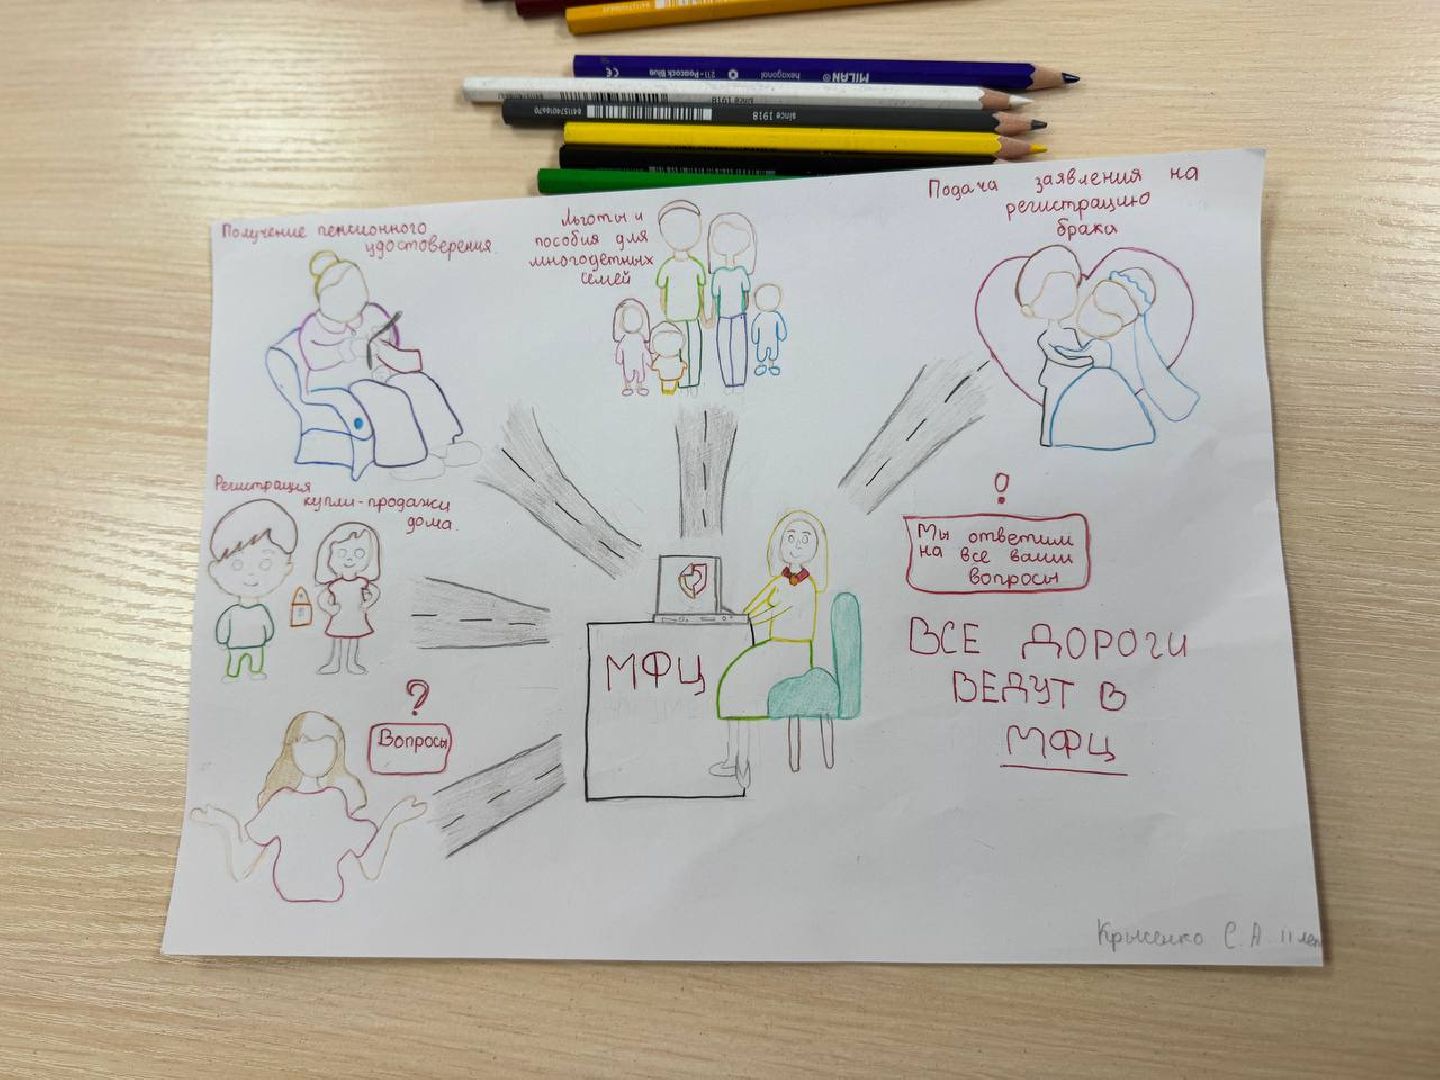 MILAN®
hexagonal
211-Peacock Blue
since 1918
since 1918
Получение пенсионного
удостоверения
Льготы и
пособия для
многодетных
семей
Подача заявления на
регистрацию
брака
Регистрация
купли-продажи
дома.
?
Вопросы
МФЦ
!
Мы ответим
на все ваши
вопросы
ВСЕ ДОРОГИ
ВЕДУТ В
МФЦ
Крысенко С.А. 11 лет